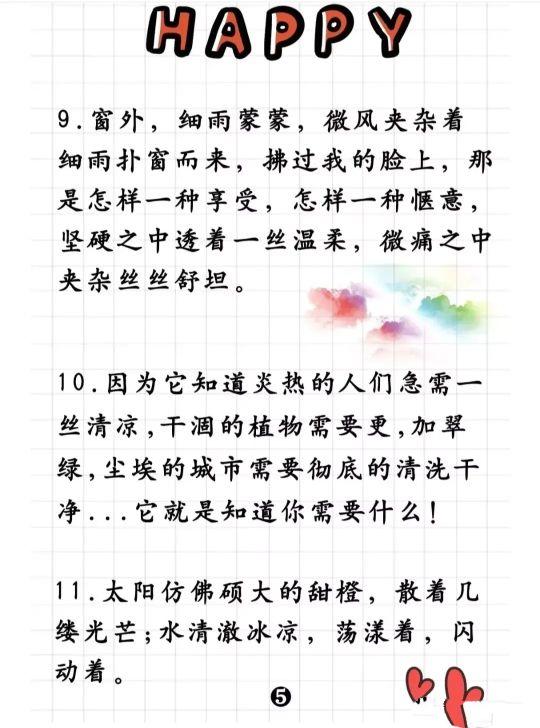 HAPPY
9.窗外，细雨蒙蒙，微风夹杂着
细雨扑窗而来，拂过我的脸上，那
是怎样一种享受，怎样一种惬意，
坚硬之中透着一丝温柔，微痛之中
夹杂丝丝舒坦。
10.因为它知道炎热的人们急需一
丝清凉,干涸的植物需要更,加翠
绿,尘埃的城市需要彻底的清洗干
净...它就是知道你需要什么!
11.太阳仿佛硕大的甜橙，散着几
缕光芒;水清澈冰凉，荡漾着，闪
动着。
5